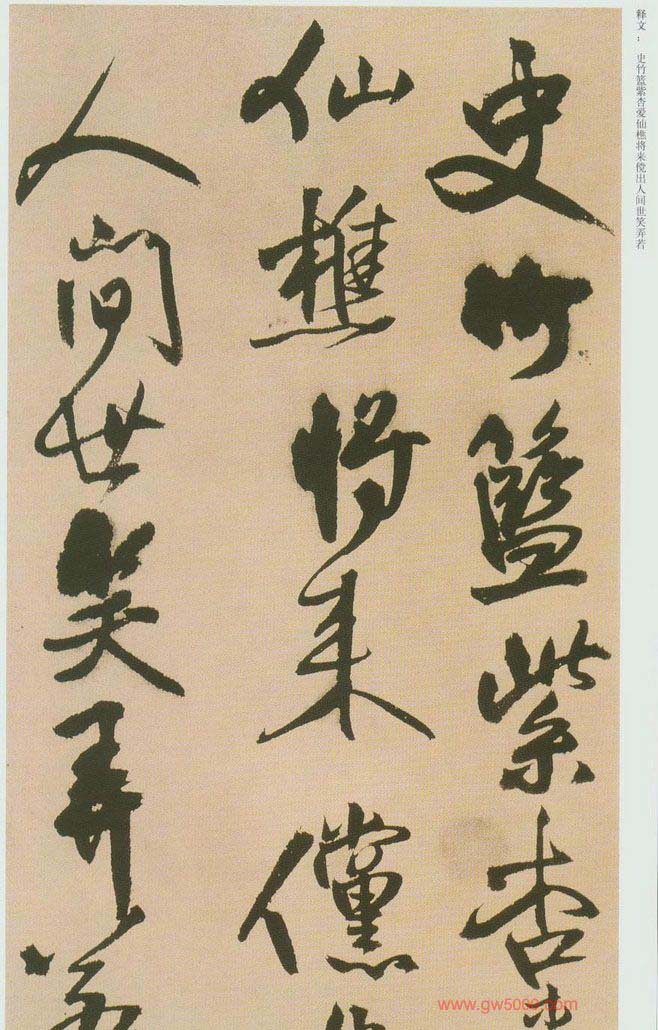 释文： 史竹篮紫杏爱仙樵将来傥出人间世笑弄若
史竹籃紫杏
仙樵将来儻
人間世笑弄若
www.gw5000.com